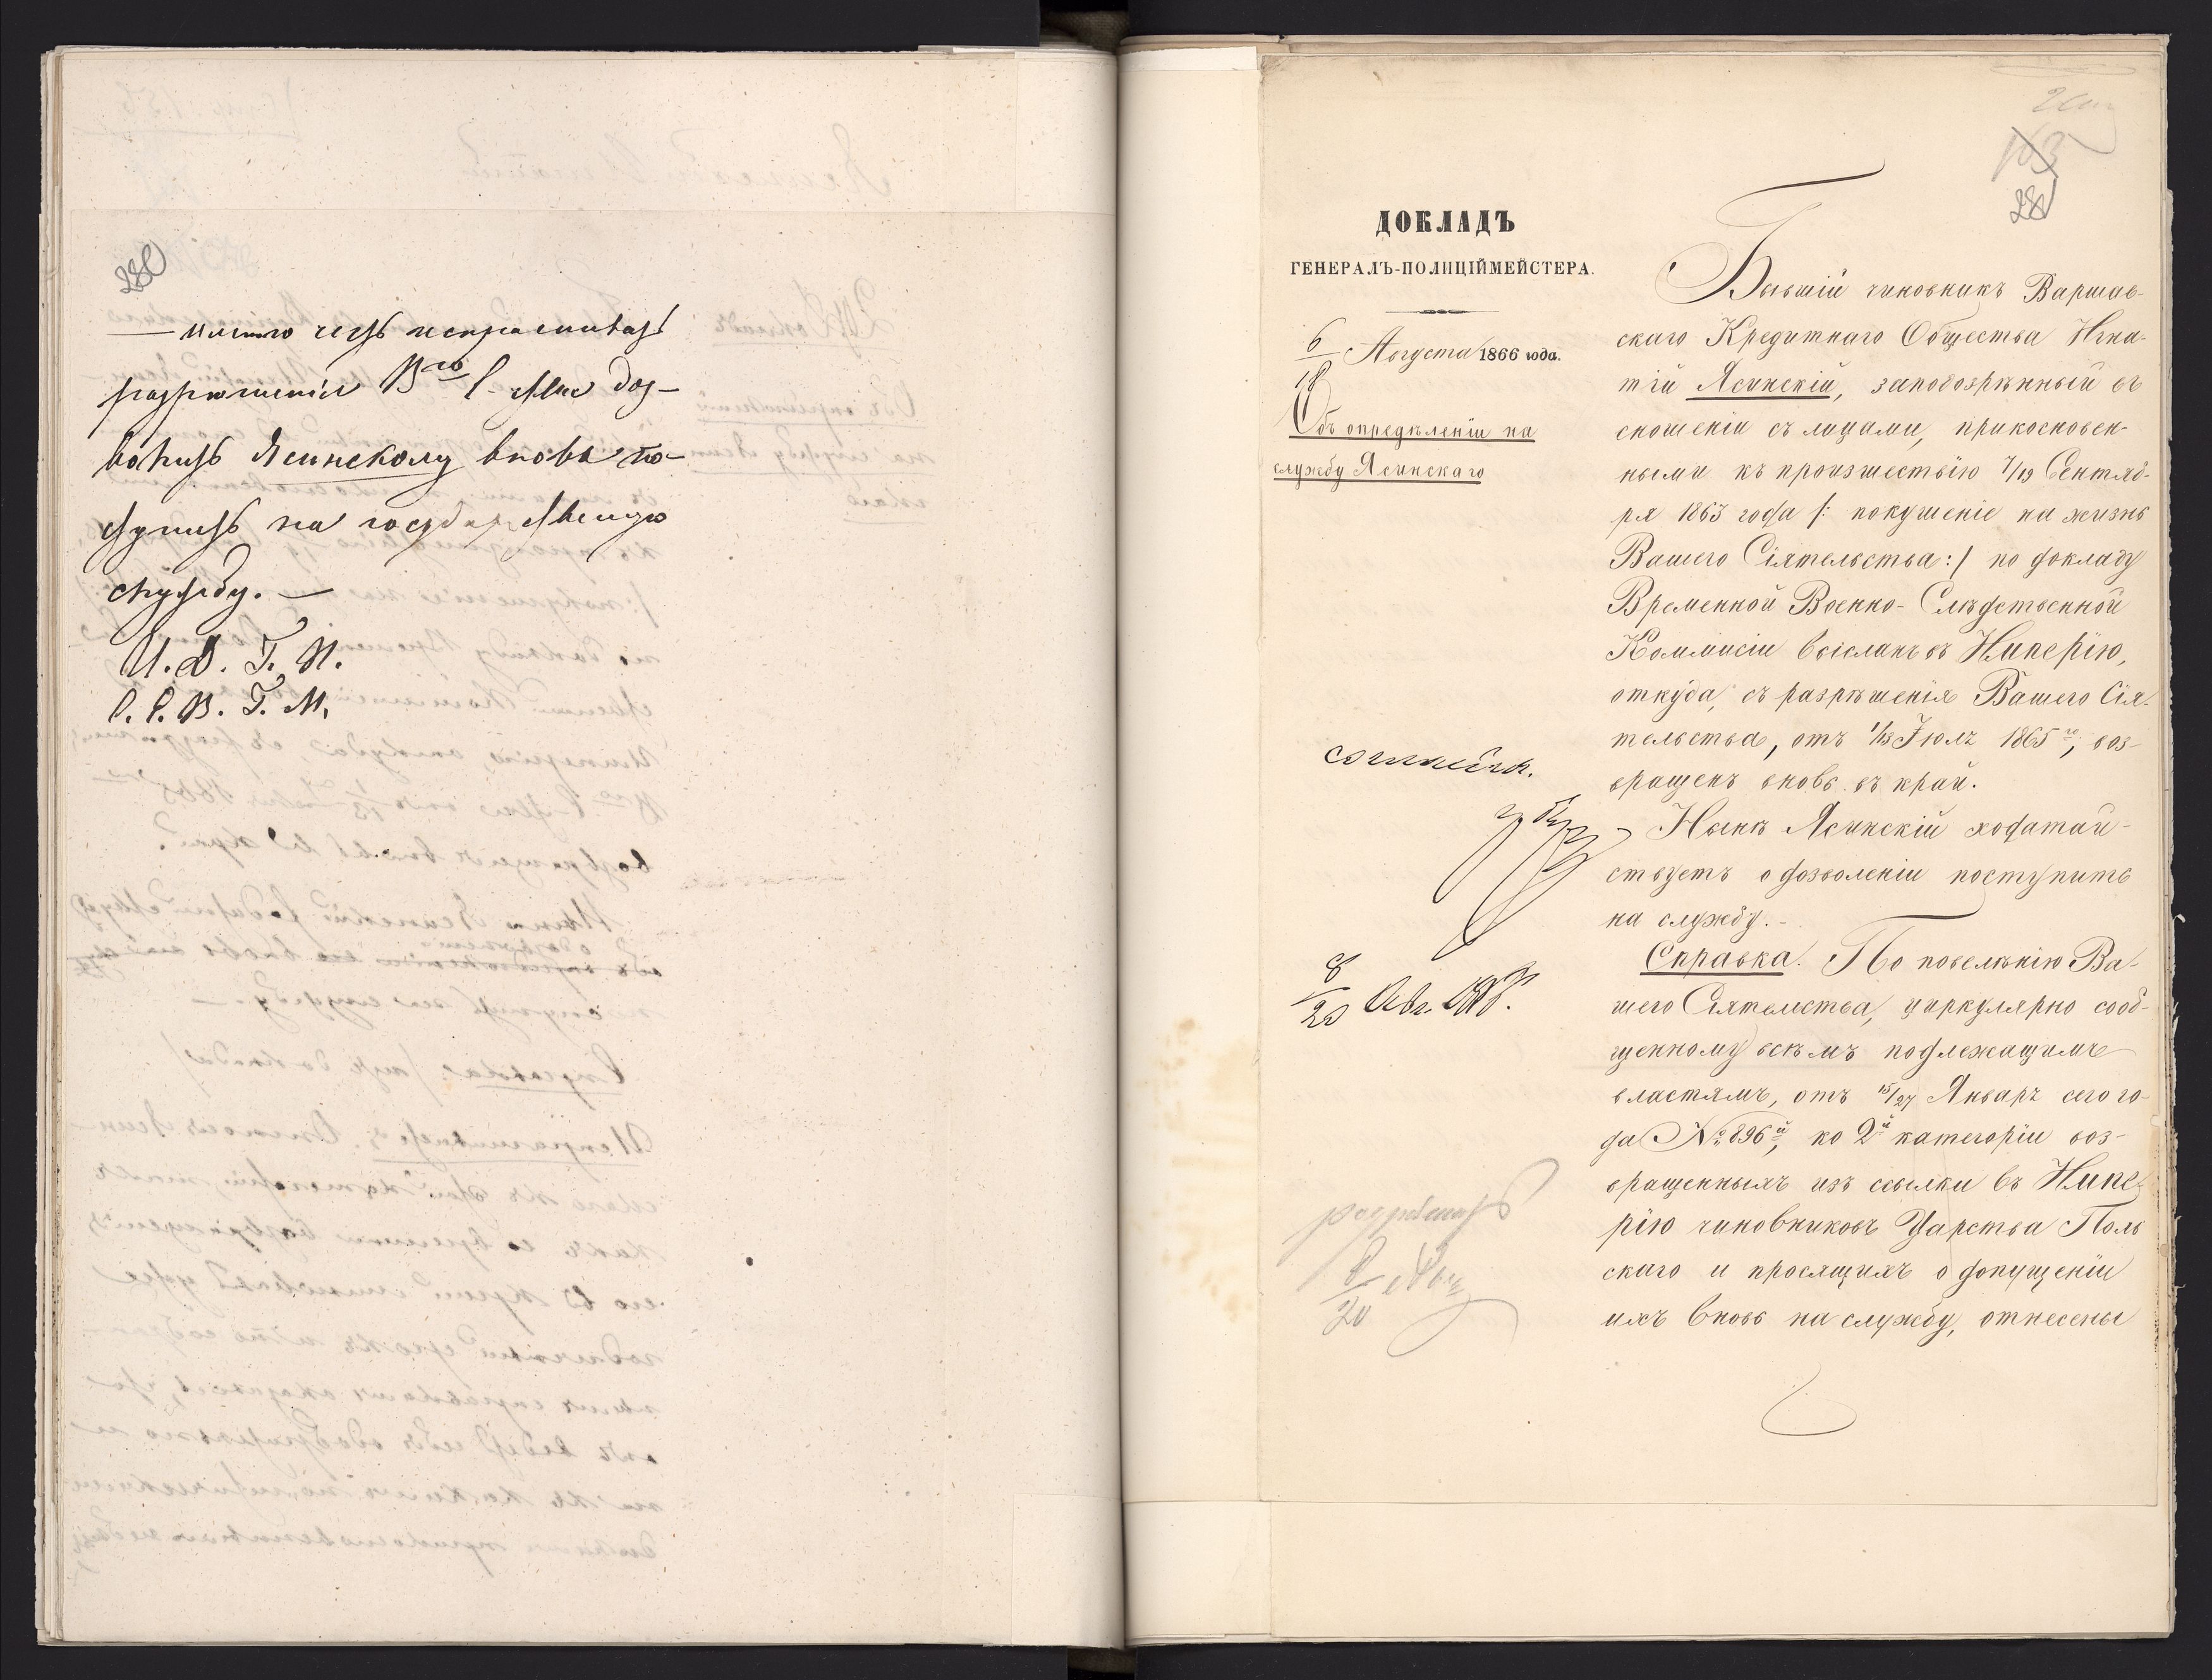 280
— имѣю честь испрашивать
разрѣшенія В<sup>го</sup> С-ства доз-
волить Ясинскому вновь по-
ступить на государственную
службу. —
И. Д. Г. П.
С. Е. В. Г. М.
103
281
ДОКЛАДЪ
ГЕНЕРАЛЪ-ПОЛИЦІЙМЕЙСТЕРА.
6/18 Августа 1866 года.
Объ опредѣленіи на
службу Ясинскаго
согласенъ.
8/20 Авг. 1866.
разрѣшить
8/20 Авг
Бывшій чиновникъ Варшав-
скаго Кредитнаго Общества Игна-
тій Ясинскій, заподозрѣнный въ
сношеніи съ лицами, прикосновен-
ными къ произшествію 7/19 Сентяб-
ря 1863 года /: покушеніе на жизнь
Вашего Сіятельства :/ по докладу
Временной Военно-Слѣдственной
Коммисіи высланъ въ Имперію,
откуда, съ разрѣшенія Вашего Сія-
тельства, отъ 1/13 Іюля 1865 <sup>го</sup>, воз-
вращенъ вновь въ край.
Нынѣ Ясинскій ходатай-
ствуетъ о дозволеніи поступить
на службу. -
Справка. По повелѣнію Ва-
шего Сіятельства, циркулярно сооб-
щенному всѣмъ подлежащимъ
властямъ, отъ 15/27 Января сего го-
да № 896<sup>й</sup>, ко 2<sup>й</sup> категоріи воз-
вращенныхъ изъ ссылки въ Импе-
рію чиновниковъ Царства Поль
скаго и просящихъ о допущеніи
ихъ вновь на службу, отнесены